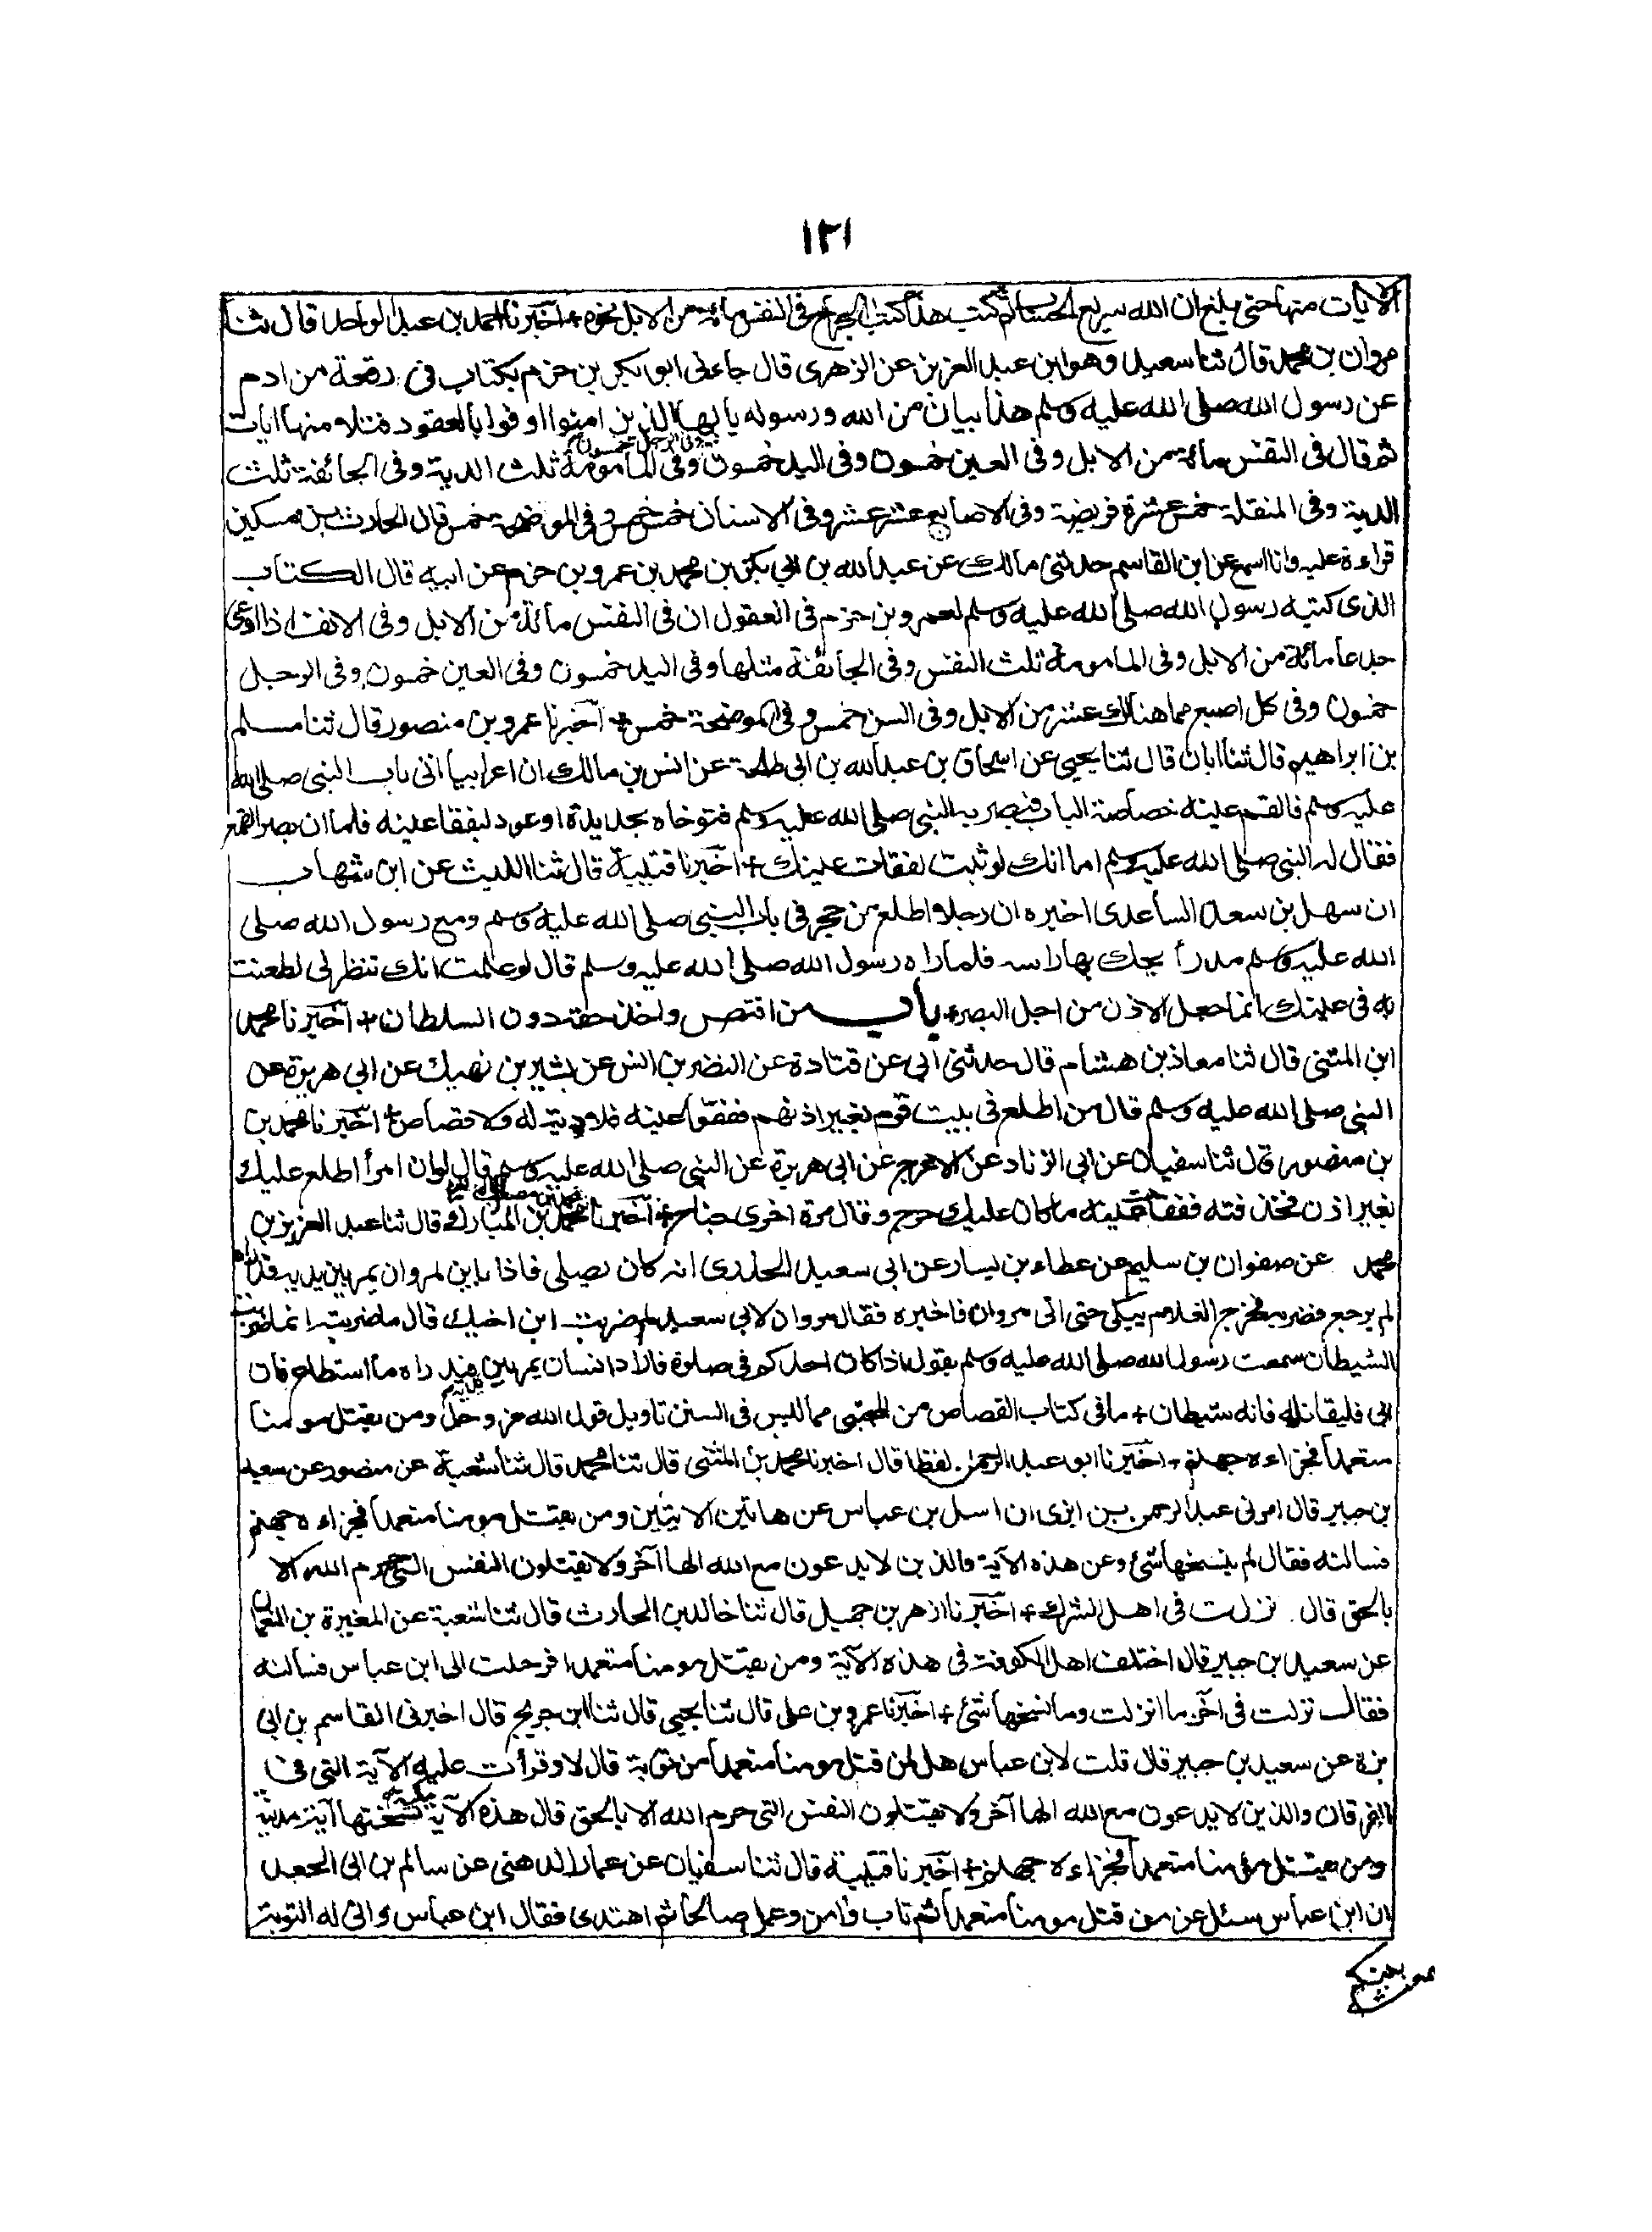 ١٢١
الآيات منها حتى بلغ ان الله سريع الحساب ثم كتب هذا كتاب الجراح فى النفس مائة من الابل نحوه + اخبرنا احمد بن عبد الواحد قال ثنا
مروان بن محمد قال ثنا سعيد وهو ابن عبد العزيز عن الزهرى قال جاءنى ابو بكر بن حزم بكتاب فى رقعة من ادم
عن رسول الله صلى الله عليه وسلم هذا بيان من الله ورسوله يا ايها الذين امنوا اوفوا بالعقود فتلا منها ايات
ثم قال فى النفس مائة من الابل وفى العين خمسون وفى اليد خمسون وفى الرجل خمسون وفى المامومة ثلث الدية وفى الجائفة ثلث
الدية وفى المنقلة خمس عشرة فريضة وفى الاصابع عشر عشر وفى الاسنان خمس خمس وفى الموضحة خمس قال الحارث بن مسكين
قراءة عليه وانا اسمع عن ابن القاسم حدثنى مالك عن عبد الله بن ابي بكر بن محمد بن عمرو بن حزم عن ابيه قال الكتاب
الذى كتبه رسول الله صلى الله عليه وسلم لعمرو بن حزم فى العقول ان فى النفس مائة من الابل وفى الانف اذا اوعى
جدعا مائة من الابل وفى المامومة ثلث النفس وفى الجائفة مثلها وفى اليد خمسون وفى العين خمسون وفى الرجل
خمسون وفى كل اصبع مما هنالك عشر من الابل وفى السن خمس وفى الموضحة خمس + اخبرنا عمرو بن منصور قال ثنا مسلم
بن ابراهيم قال ثنا ابان قال ثنا يحيى عن اسحاق بن عبد الله بن ابى طلحة عن انس بن مالك ان اعرابيا اتى باب النبى صلى الله
عليه وسلم فالقم عينه خصاصة الباب فبصر به النبى صلى الله عليه وسلم فتوخاه بحديدة او عود ليفقا عينه فلما ان بصر انقمع
فقال له النبى صلى الله عليه وسلم اما انك لو ثبت لفقات عينك + اخبرنا قتيبة قال ثنا الليث عن ابن شهاب
ان سهل بن سعد الساعدى اخبره ان رجلا اطلع من جحر فى باب النبى صلى الله عليه وسلم ومع رسول الله صلى
الله عليه وسلم مدرأ يحك بها راسه فلما راه رسول الله صلى الله عليه وسلم قال لو علمت انك تنظر لى لطعنت
به فى عينك انما جعل الاذن من اجل البصر + باب من اقتص واخذ حقه دون السلطان + اخبرنا محمد
ابن المثنى قال ثنا معاذ بن هشام قال حدثنى ابى عن قتادة عن النضر بن انس عن بشير بن نهيك عن ابي هريرة عن
النبى صلى الله عليه وسلم قال من اطلع فى بيت قوم بغير اذنهم ففقؤا عينه فلا دية له ولا قصاص + اخبرنا محمد بن
بن منصور قال ثنا سفيان عن ابى الزناد عن الاعرج عن ابى هريرة عن النبى صلى الله عليه وسلم قال لو ان امرأ اطلع عليك
بغير اذن فخذفته ففقات عينه ما كان عليك حرج وقال مرة اخرى جناح + اخبرنا محمد بن مصعب قال ثنا محمد بن المبارك قال ثنا عبد العزيز بن
محمد عن صفوان بن سليم عن عطاء بن يسار عن ابى سعيد الخدرى انه كان يصلى فاذا بابن لمروان يمر بين يديه فدراه
لم يرجع فضربه فخرج الغلام يبكى حتى اتى مروان فاخبره فقال مروان لابي سعيد لم ضربت ابن اخيك قال ما ضربته انما ضربت
الشيطان سمعت رسول الله صلى الله عليه وسلم يقول اذا كان احدكم فى صلوة فاراد انسان يمر بين يديه فيدراه ما استطاع فان
ابى فليقاتله فانه شيطان + ما فى كتاب القصاص من المجتبى مما ليس فى السنن تاويل قول الله عز وجل ومن يقتل مومنا
متعمدا فجزاءه جهنم + اخبرنا ابو عبد الرحمن لفظا قال اخبرنا محمد بن المثنى قال ثنا محمد قال ثنا شعبة عن منصور عن سعيد
بن جبير قال امرنى عبد الرحمن بن ابزى ان اسل بن عباس عن هاتين الايتين ومن يقتل مومنا متعمدا فجزاءه جهنم
فسالته فقال لم ينسخها شئ وعن هذه الآية والذين لا يدعون مع الله الها آخر ولا يقتلون النفس التى حرم الله الا
بالحق قال نزلت فى اهل الشرك + اخبرنا ازهر بن جميل قال ثنا خالد بن الحارث قال ثنا شعبة عن المغيرة بن النعمان
عن سعيد بن جبير قال اختلف اهل الكوفة فى هذه الآية ومن يقتل مومنا متعمدا فرحلت الى ابن عباس فسالته
فقال نزلت فى آخر ما انزلت وما نسخها شئ + اخبرنا عمرو بن على قال ثنا يحيى قال ثنا ابن جريج قال اخبرنى القاسم بن ابى
بزة عن سعيد بن جبير قال قلت لابن عباس هل لمن قتل مومنا متعمدا من توبة قال لا وقرأت عليه الآية التى فى
الفرقان والذين لا يدعون مع الله الها آخر ولا يقتلون النفس التى حرم الله الا بالحق قال هذه الآية مكية نسختها آية مدنية
ومن يقتل مومنا متعمدا فجزاءه جهنم + اخبرنا قتيبة قال ثنا سفيان عن عمار الدهنى عن سالم بن ابى الجعد
ان ابن عباس سئل عن من قتل مومنا متعمدا ثم تاب وامن وعمل صالحا ثم اهتدى فقال ابن عباس وانى له التوبة